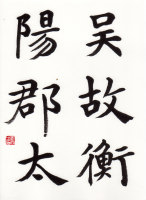 吴故衡
陽郡太